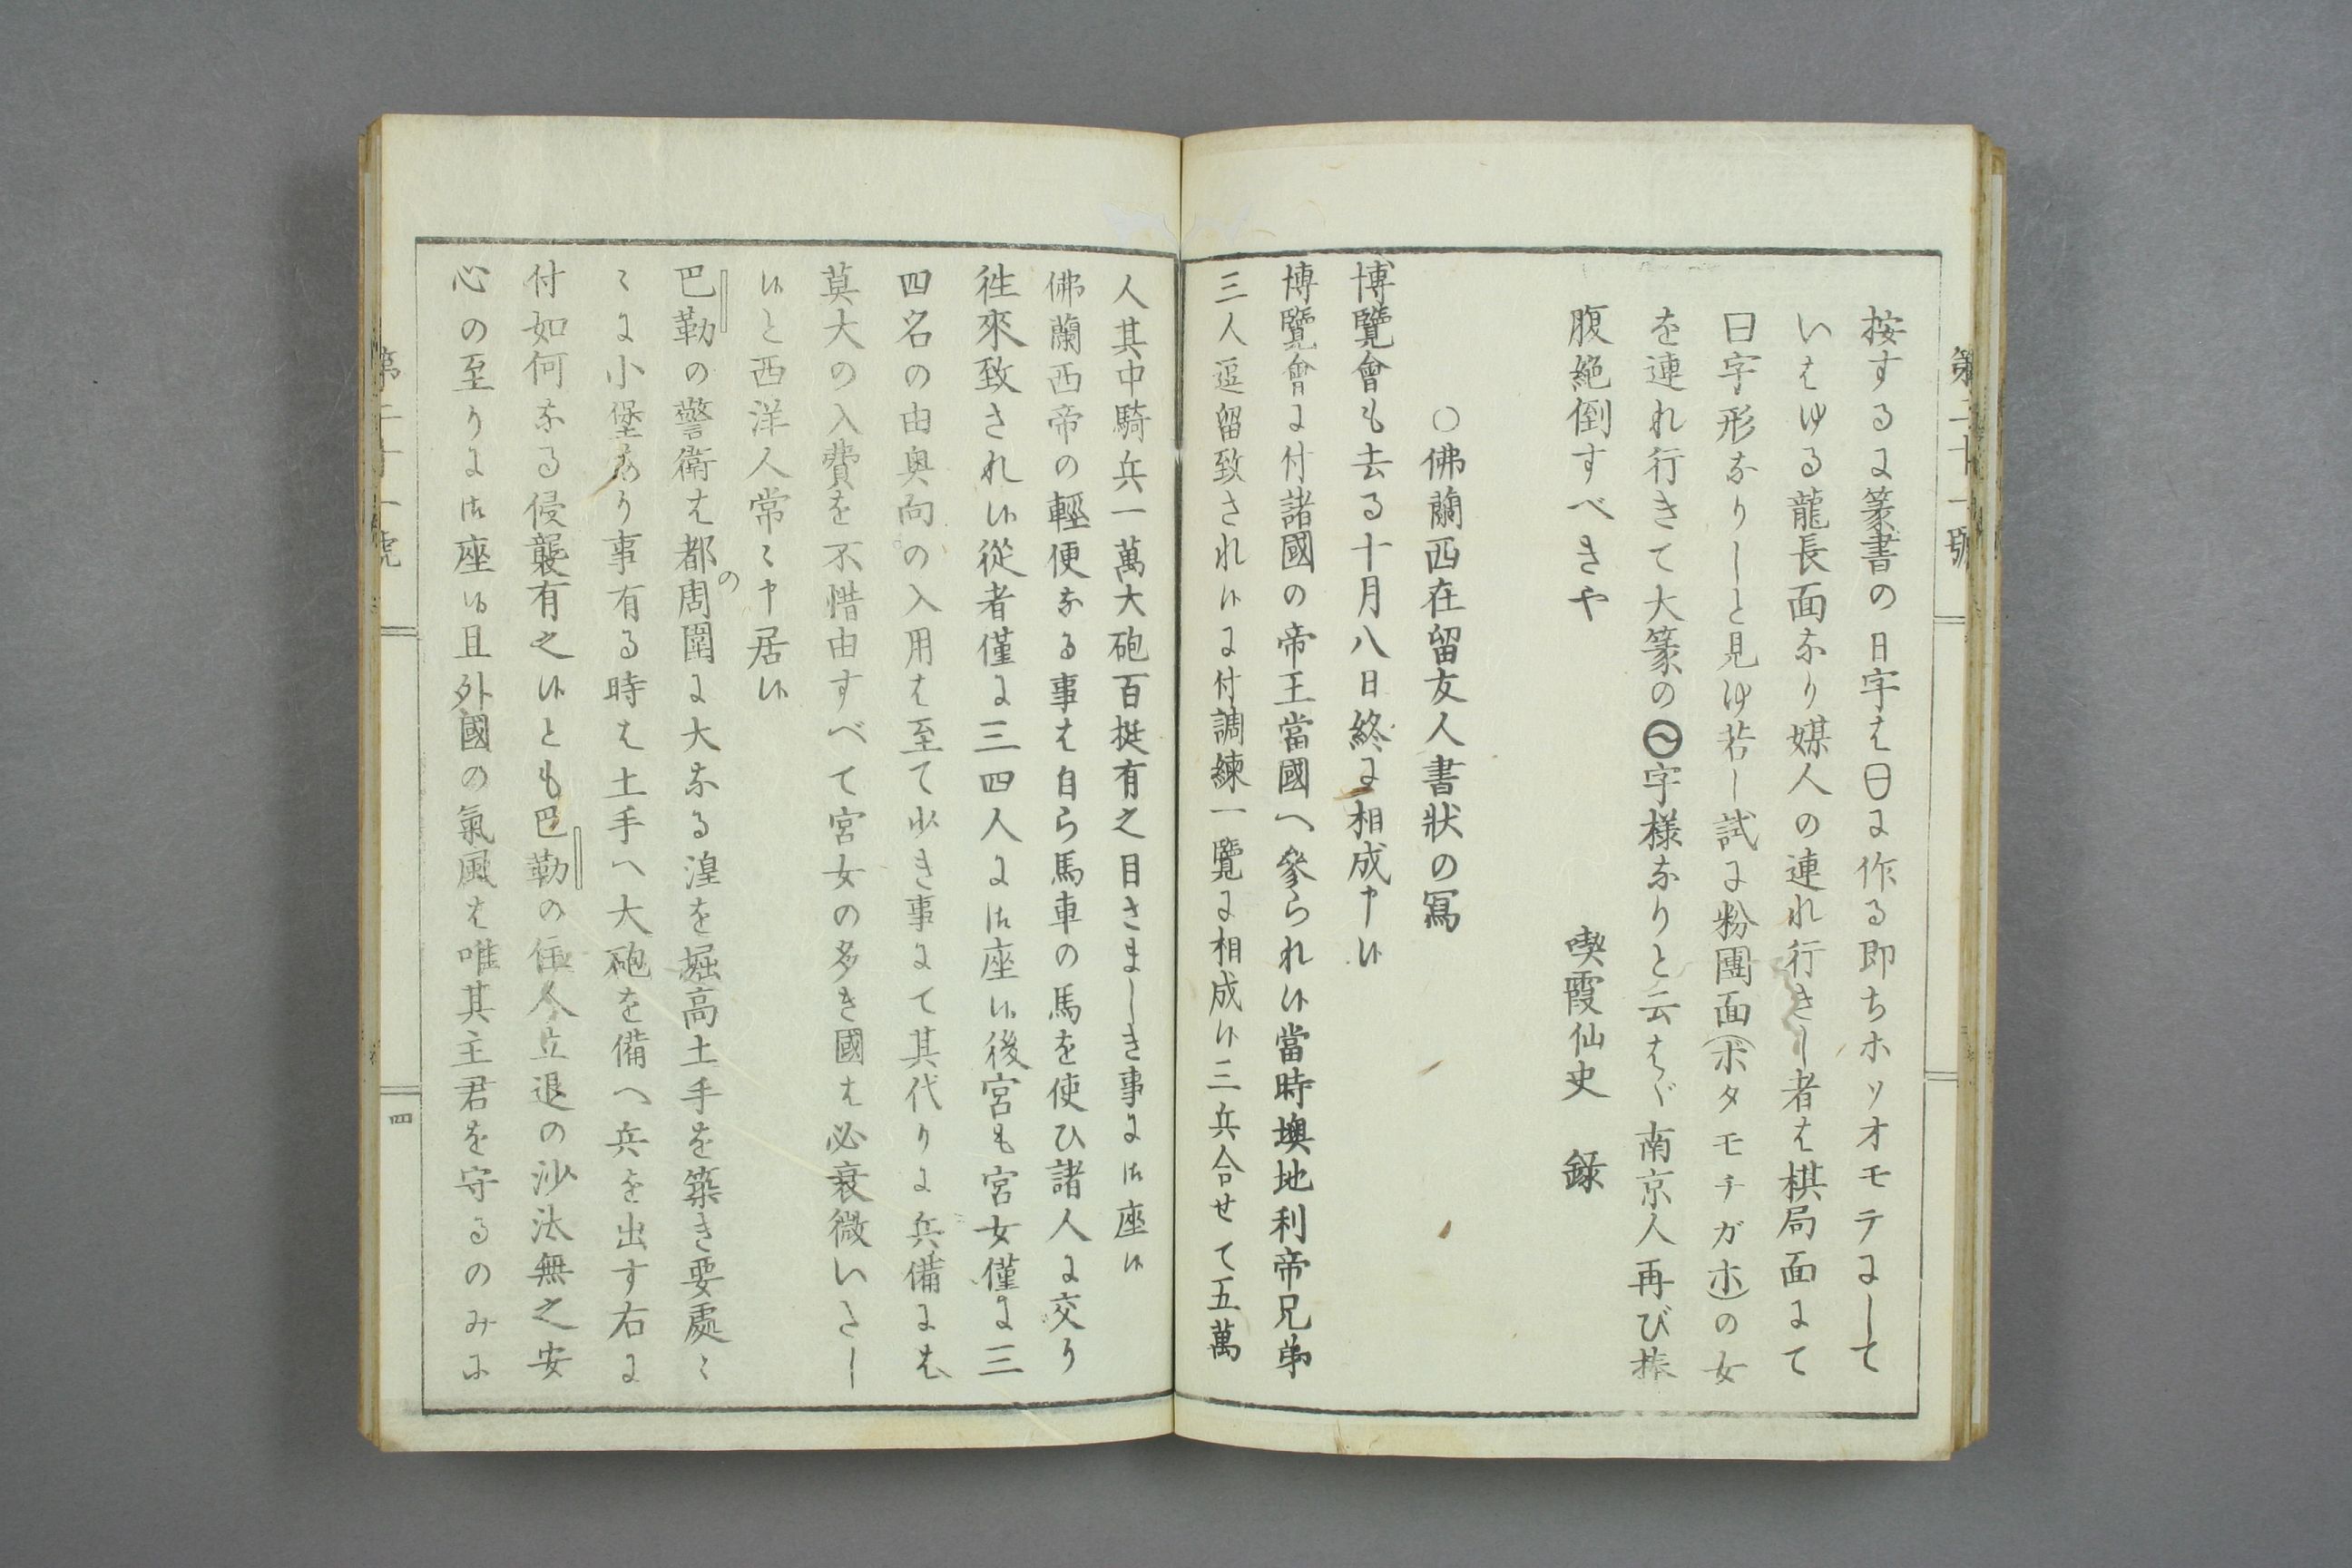 第二十一號
按するに篆書の日字は日に作る即ちホソオモテにして
いはゆる龍長面なり媒人の連れ行きし者は棋局面にて
曰字形なりしと見ゆ若し試に粉團面(ボタモチガホ)の女
を連れ行きて大篆の字様なりと云はゞ南京人再び捧
腹絶倒すべきや
喫霞仙史 録
○佛蘭西在留友人書状の冩
博覽會も去る十月八日終に相成申候
博覽會に付諸國の帝王當國へ參られ候當時墺地利帝兄弟
三人逗留致され候に付調練一覽に相成候三兵合せて五萬
人其中騎兵一萬大砲百挺有之目さましき事に御座候
佛蘭西帝の輕便なる事は自ら馬車の馬を使ひ諸人に交り
徃來致され候從者僅に三四人に御座候後宮も宮女僅に三
四名の由奥向の入用は至て少き事にて其代りに兵備には
莫大の入費を不惜由すべて宮女の多き國は必衰微いたし
候と西洋人常〻申居候
巴勒の警衛は都の周圍に大なる湟を堀高土手を築き要處〻
〻に小堡あり事有る時は土手へ大砲を備へ兵を出す右に
付如何なる侵襲有之候とも巴勒の住人立退の沙汰無之安
心の至りに御座候且外國の氣風は唯其主君を守るのみに
第二十一號
四